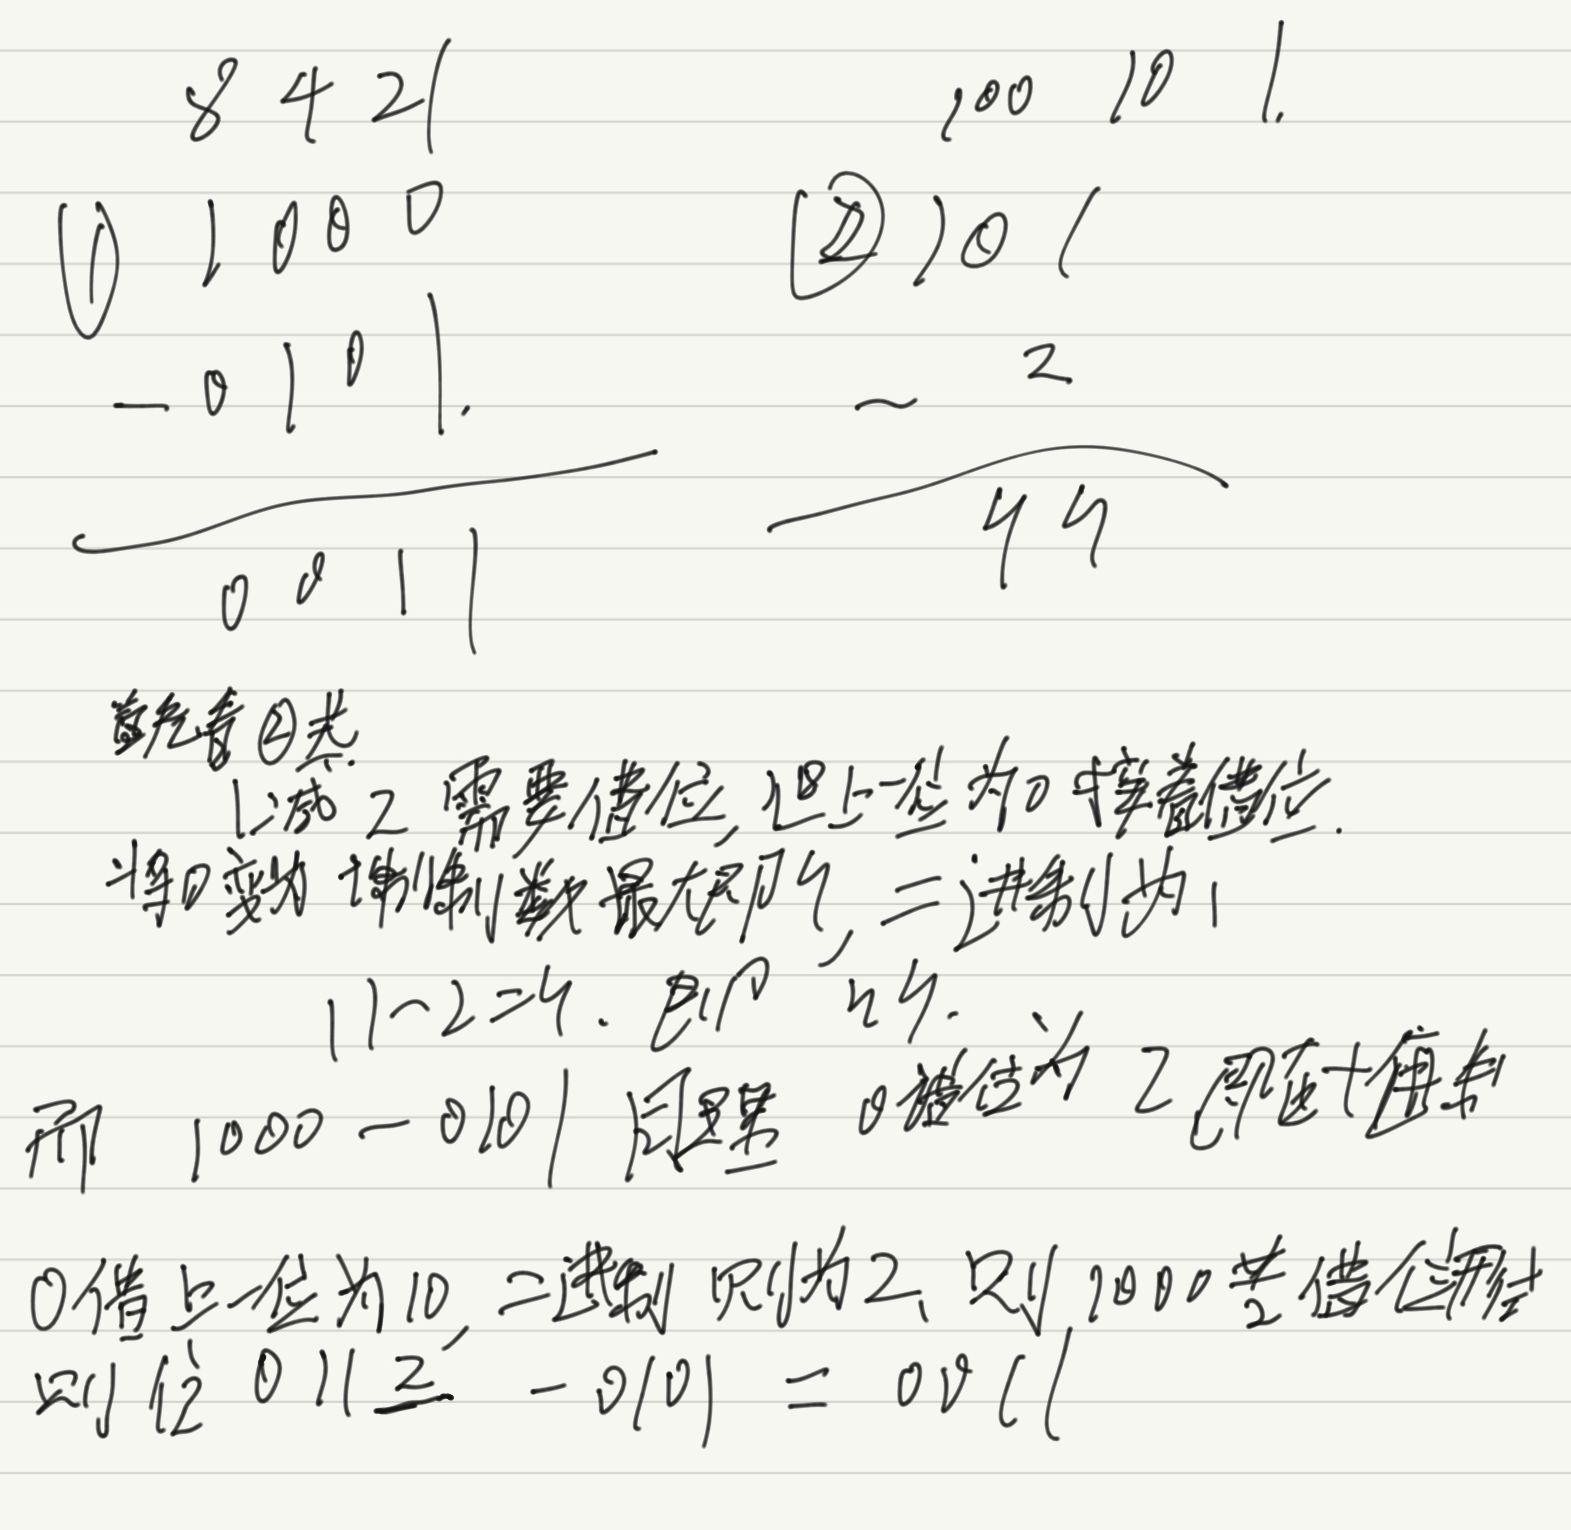 8 4 2 1
100 10 1.
① 1 0 0 0
② 1 0 1
- 0 1 0 1.
- 2
0 0 1 1
9 9
首先看②式.
1减2需要借位,但上一位为0接着借位.
将0变为 制数最大即9,二进制为1
11-2=9. 即 99.
而 1000-0101 同理 0借位为2 即在十进制
0借上一位为10,二进制则为2、则1000 借位
则 0112 - 0101 = 0011